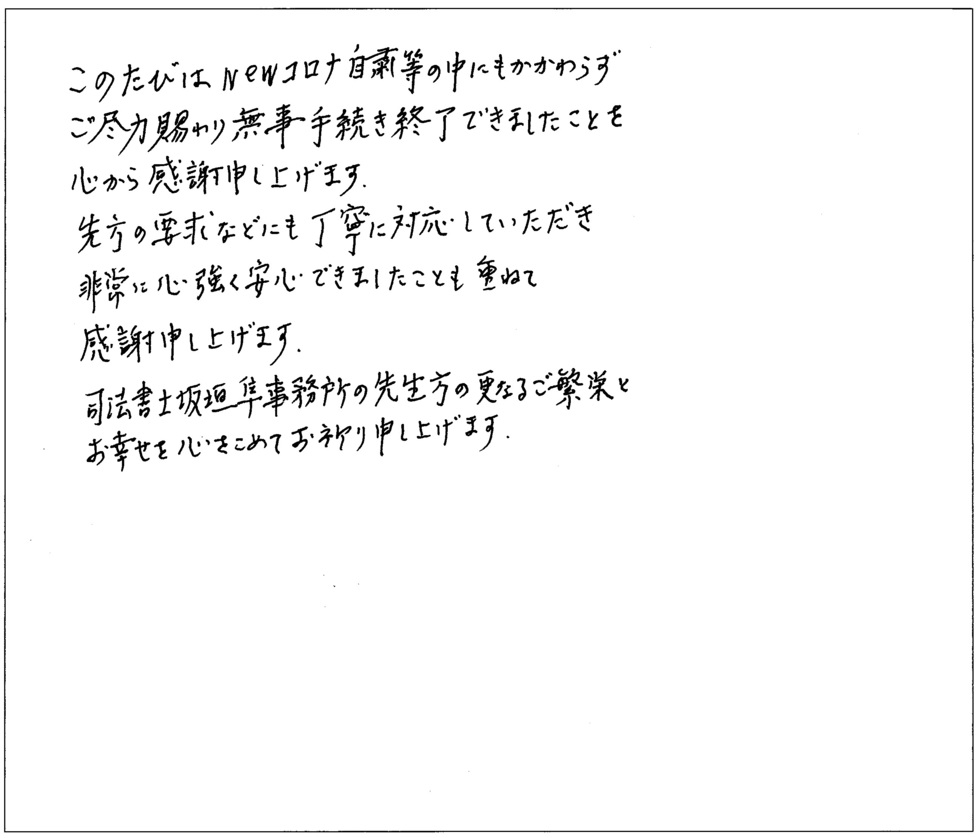 このたびはNewコロナ自粛等の中にもかかわらず
ご尽力賜わり無事手続き終了できましたことを
心から感謝申し上げます.
先方の要求などにも丁寧に対応していただき
非常に心強く安心できましたことも重ねて
感謝申し上げます.
司法書士坂垣隼事務所の先生方の更なるご繁栄と
お幸せを心をこめてお祈り申し上げます.